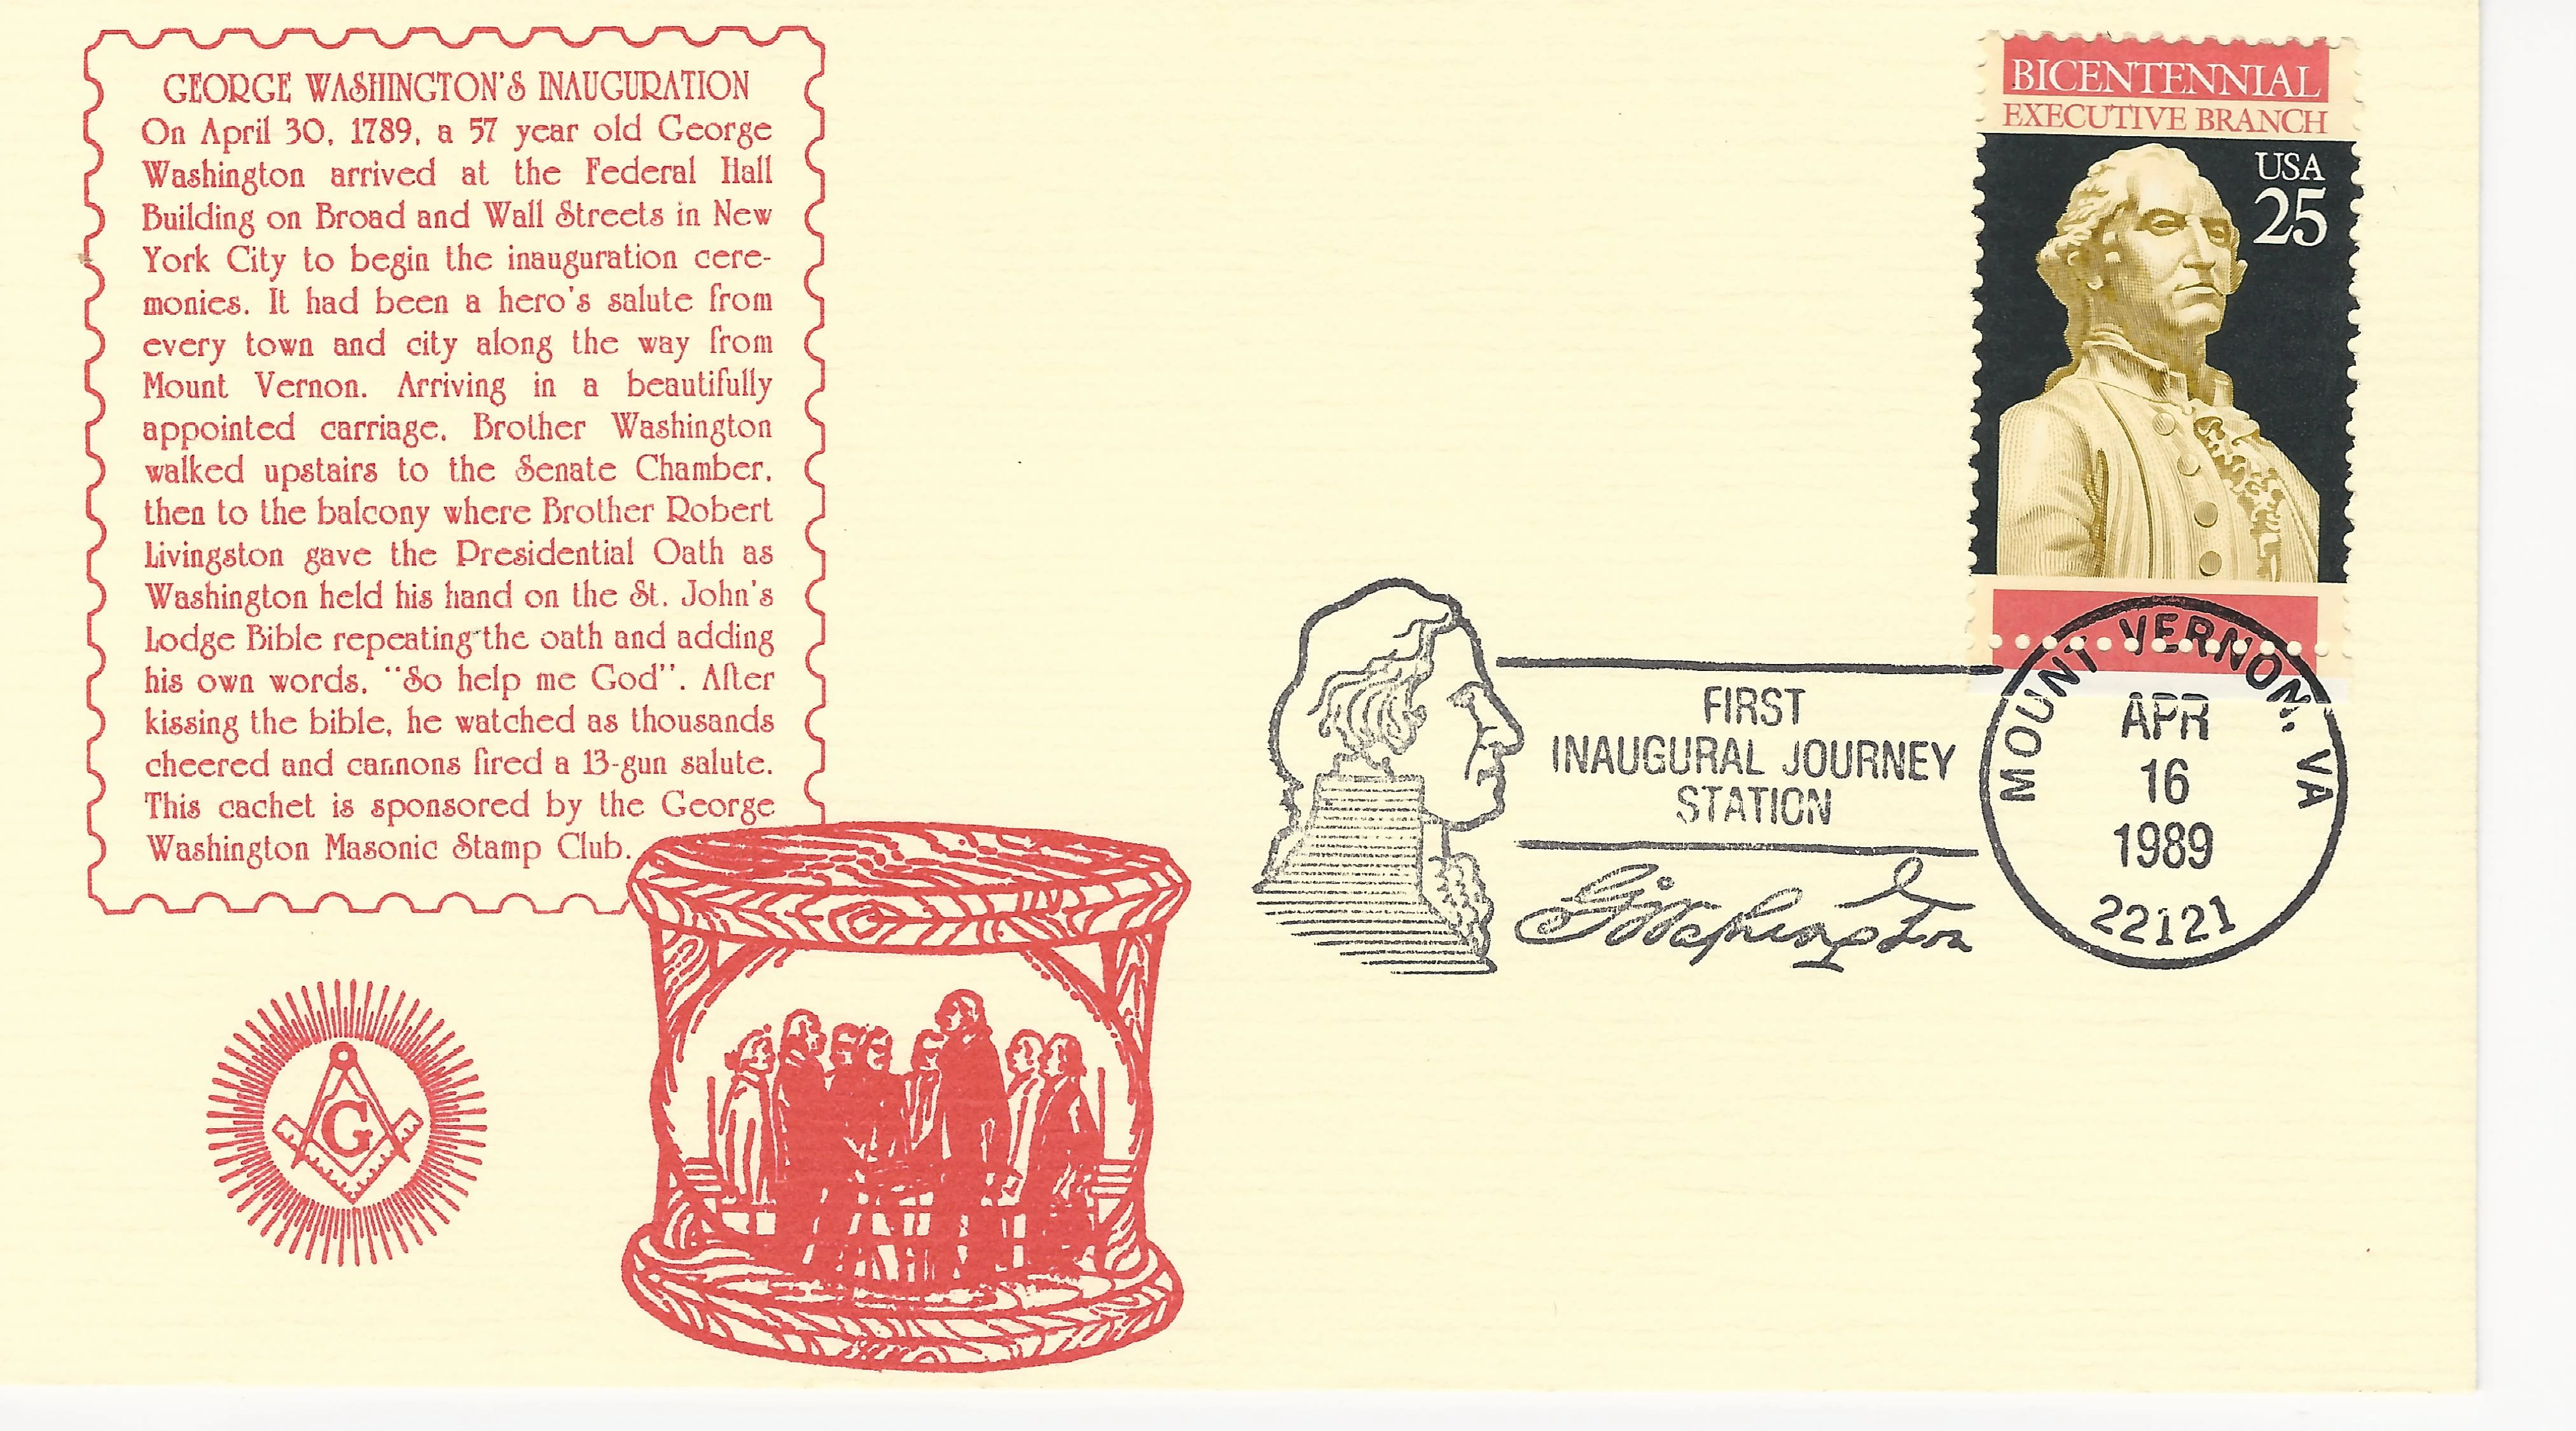 GEORGE WASHINGTON'S INAUGURATION
On April 30, 1789, a 57 year old George
Washington arrived at the Federal Hall
Building on Broad and Wall Streets in New
York City to begin the inauguration cere-
monies. It had been a hero's salute from
every town and city along the way from
Mount Vernon. Arriving in a beautifully
appointed carriage, Brother Washington
walked upstairs to the Senate Chamber,
then to the balcony where Brother Robert
Livingston gave the Presidential Oath as
Washington held his hand on the St. John's
Lodge Bible repeating the oath and adding
his own words, "So help me God". After
kissing the bible, he watched as thousands
cheered and cannons fired a 13-gun salute.
This cachet is sponsored by the George
Washington Masonic Stamp Club.
G
BICENTENNIAL
EXECUTIVE BRANCH
USA
25
FIRST
INAUGURAL JOURNEY
STATION
G Washington
MOUNT VERNON, VA
APR
16
1989
22121